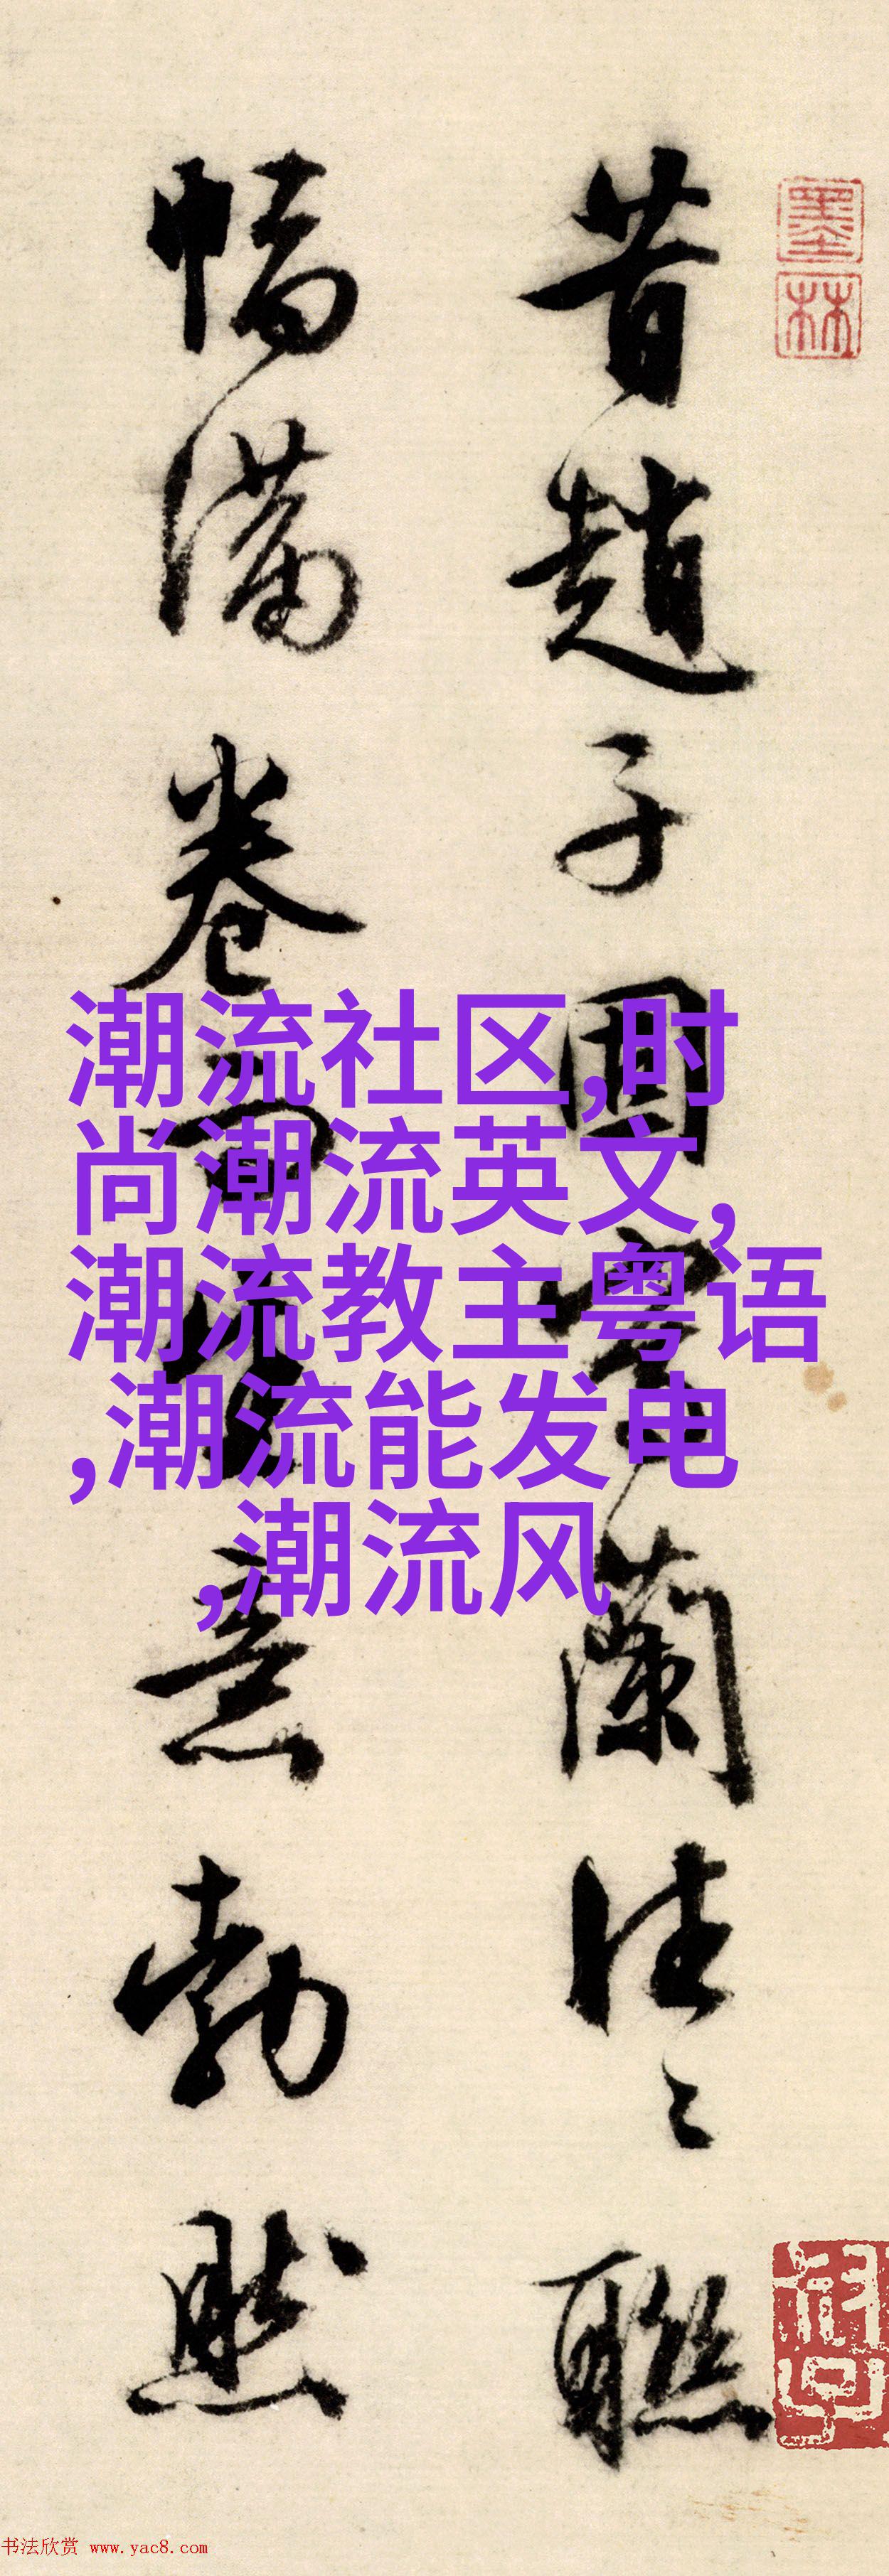 昔趙子固寫蘭往々聯
幅滿卷而生意勃然
墨林
潮流社区,时
尚潮流英文,
潮流教主粤语
,潮流能发电
,潮流风
书法欣赏 www.yac8.com